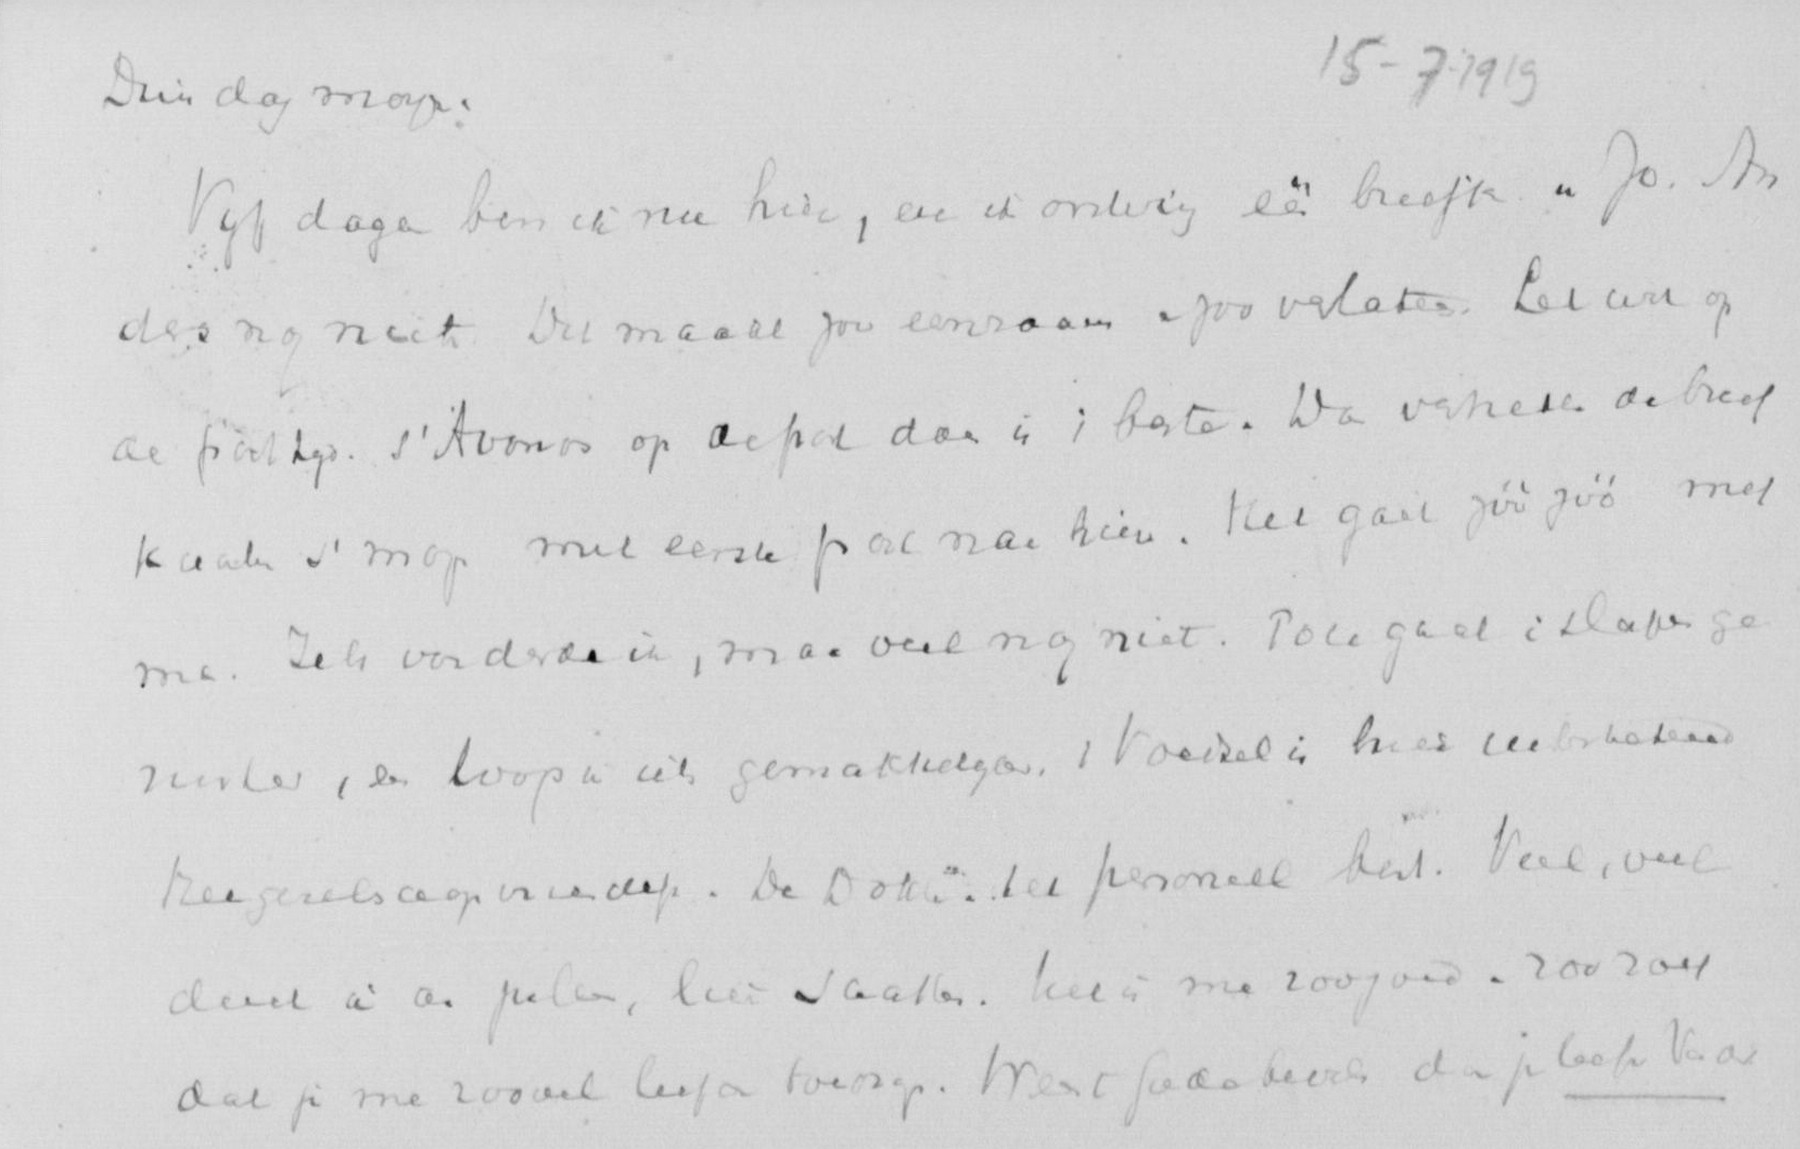 15-7-1919
Dinsdag morgen:
Vyf dagen ben ik nu hier, en ik ontving één briefje v Jo. An
ders nog niets. Dit maakt jou eenzaam en zoo verlaten. Let wel op
de posttyd. s'Avonds op de post doen is 't beste. Dan vertrekt de brief
s' morg met eerste post naar hier. Het gaat zóó zóó met
me. Iets vorderde ik, maar veel nog niet. Toch gaat 't slapen ge
ruster, en loop ik iets gemakkelyker. 't Voedsel is hier uitstekend
Het gezelschap vriendelyk. De Dokter en het personeel best. Veel, veel
denk ik aan jullie, lieve schatten. Het is me zoo goed en zoo zoet
dat je me zooveel liefde toezorgt. Weest Gode bevolen door je liefh Vader